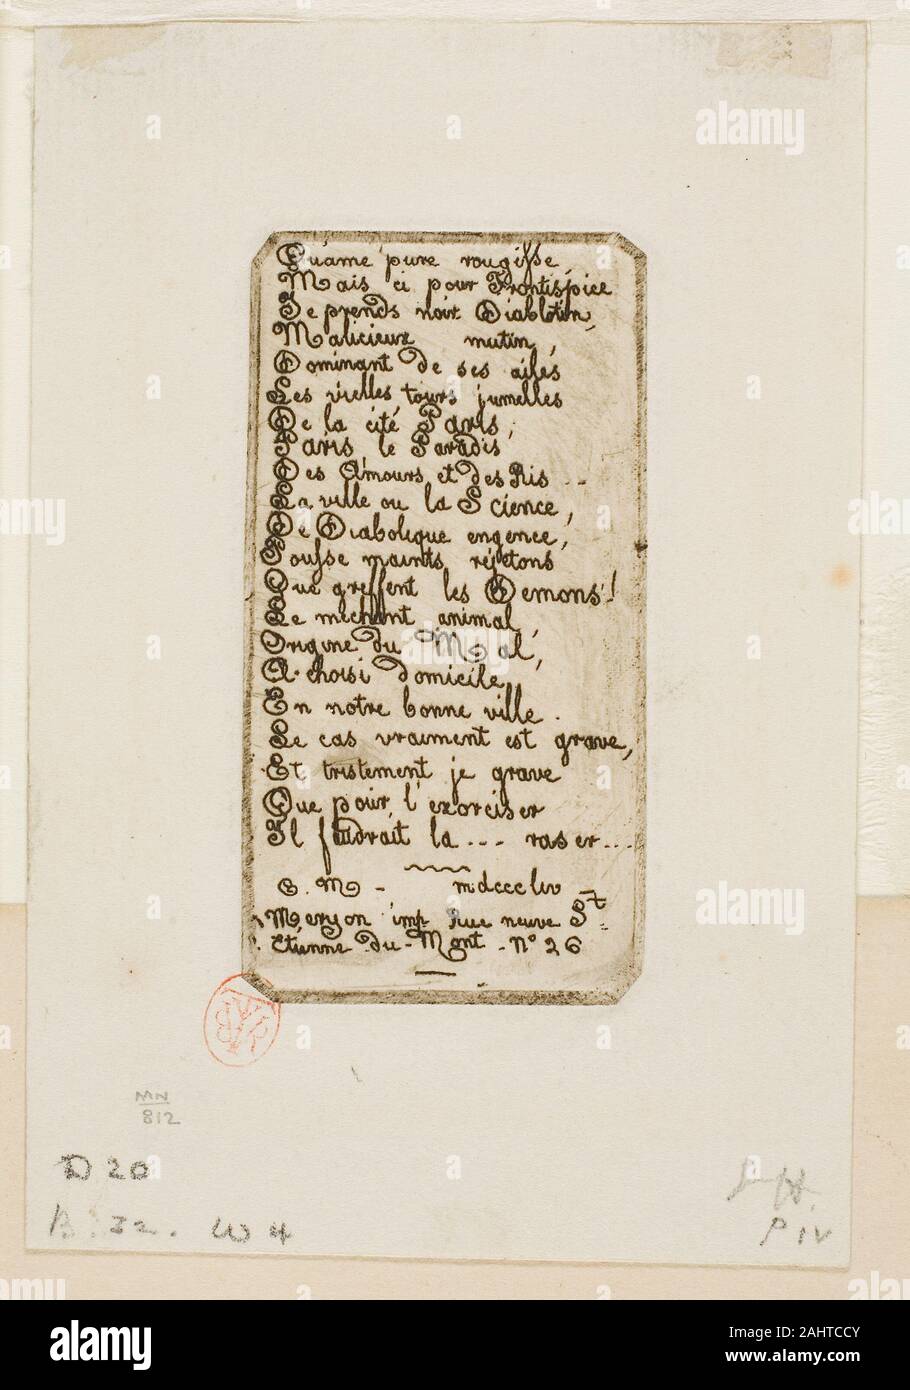 Qu'âme pure rougisse
Mais ci pour Frontispice
Je prends noir Diablotin,
Malicieux mutin,
Dominant de ses ailes
Les vieilles tours jumelles
De la cité Paris,
Paris le Paradis
Des Amours et des Ris - -
La ville ou la Science,
De Diabolique engence,
Pousse maints rejetons
Que greffent les Démons!
Le méchant animal,
Origine du Mal,
A choisi domicile
En notre bonne ville.
Le cas vraiment est grave,
Et tristement je grave
Que pour l'exorciser
Il faudrait la --- raser...
C. M - mdcccliv -
Meryon imp Rue neuve St
Etienne-du-Mont - No 26
MN
812
D 20
B. 32. W 4
P IV
alamy
a
alamy
Image ID: 2AHTCCY
www.alamy.com